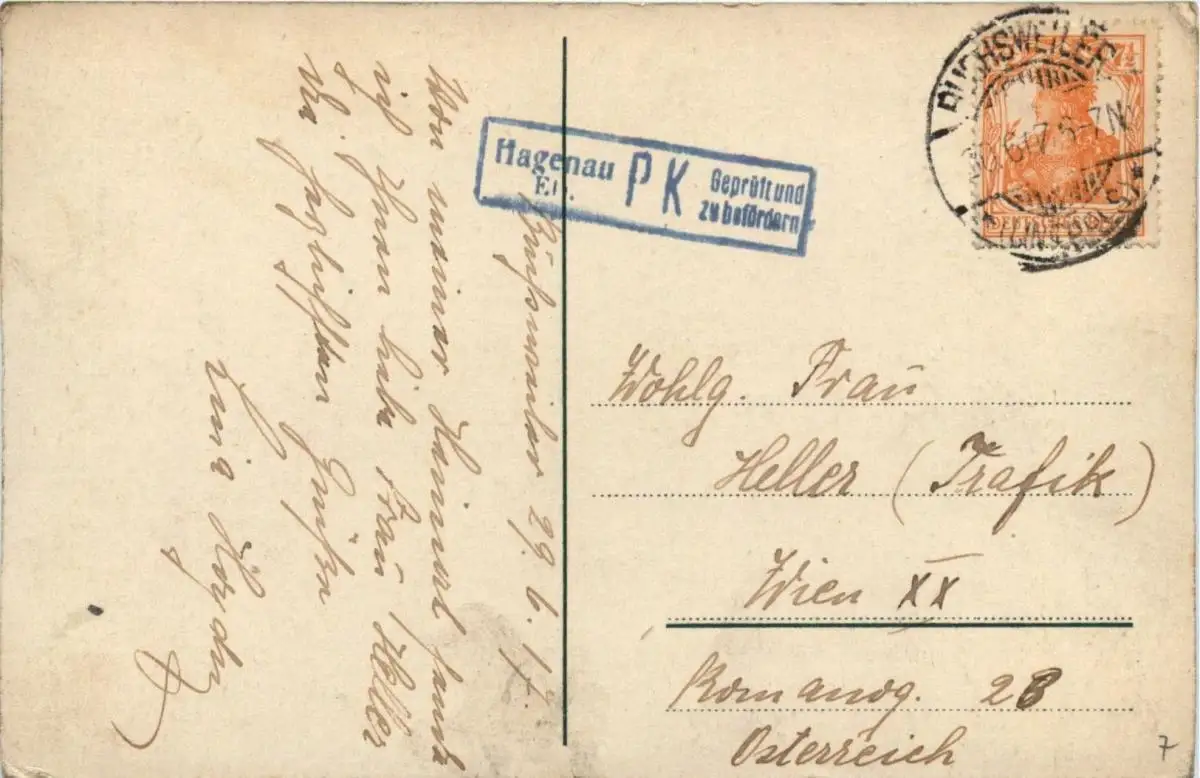 Buchsweiler 29.6.17.
Von meiner Heimat sende
ich Ihnen liebe Frau Heller
die herzlichsten Grüße
Hagenau PK Geprüft und
Els. zu befördern
BUCHSWEILER
7½
Wohlg. Frau
Heller (Trafik)
Wien XX
Romanog. 28
Österreich
7